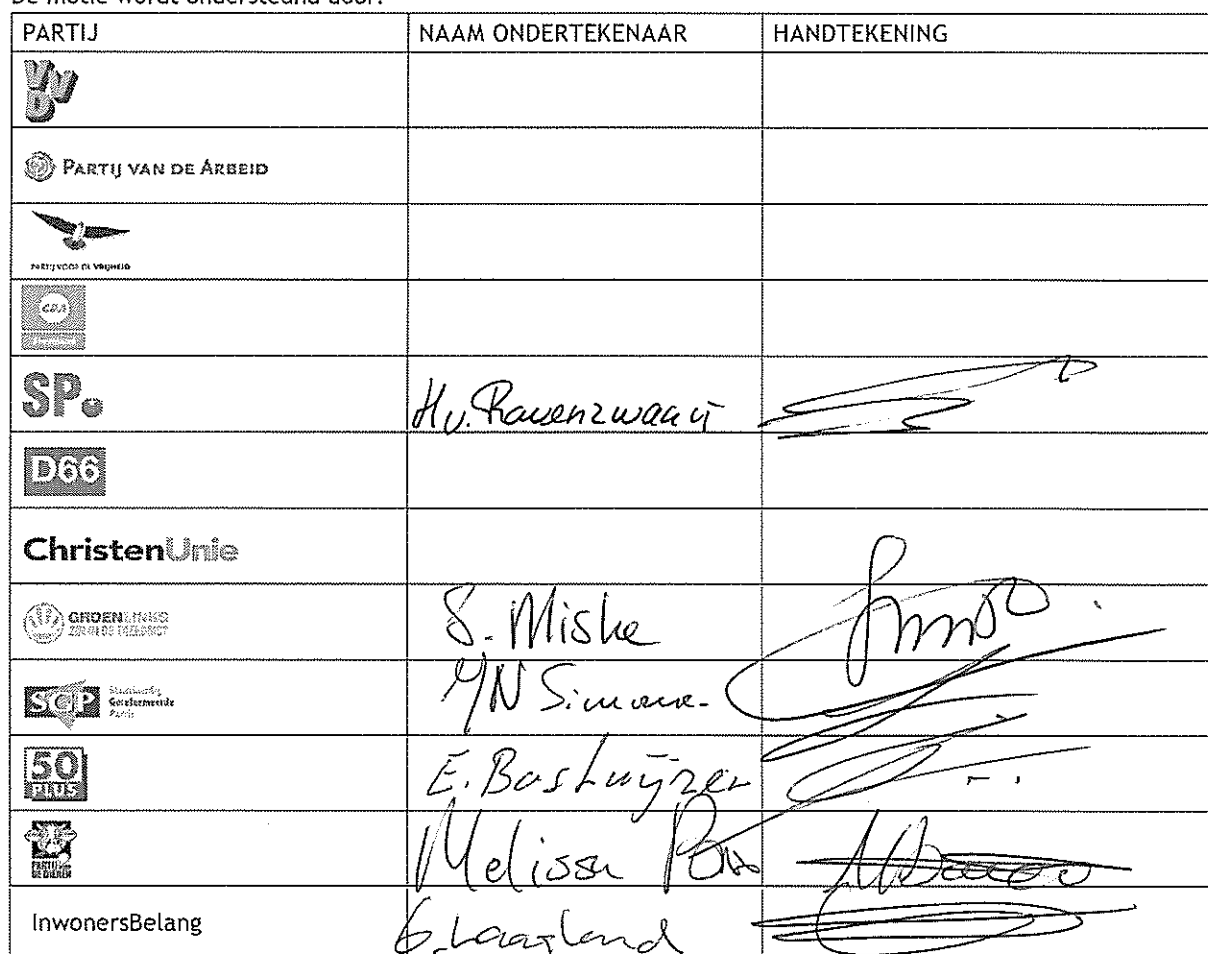 PARTIJ NAAM ONDERTEKENAAR HANDTEKENING
VVD
PARTIJ VAN DE ARBEID
PARTIJ VOOR DE VRIJHEID
CDA
SP. H v. Ravenzwaaij
D66
ChristenUnie
GROENLINKS S. Miske
SGP Staatkundig Gereformeerde Partij Simone
50 PLUS E. Boshuijzen
PARTIJ VOOR DE DIEREN Melissa
InwonersBelang G. Laagland